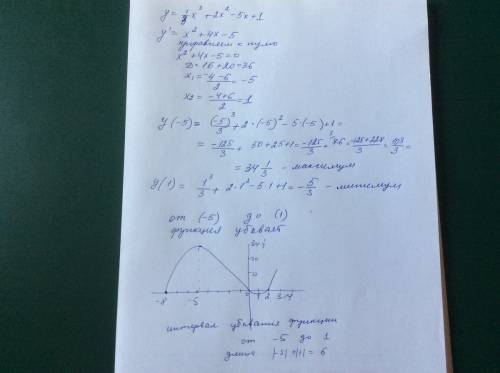 y = 1/3 x³ + 2x² - 5x + 1
y' = x² + 4x - 5
приравняем к нулю
x² + 4x - 5 = 0
D = 16 + 20 = 36
x₁ = (-4-6)/2 = -5
x₂ = (-4+6)/2 = 1
y(-5) = (-5)³/3 + 2·(-5)² - 5·(-5) + 1 =
= -125/3 + 50 + 25 + 1 = -125/3 + 76 = (-125+228)/3 = 103/3 =
= 34 1/3 - максимум
y(1) = 1³/3 + 2·1² - 5·1 + 1 = -5/3 - минимум
от (-5) до (1)
функция убывает
-8 -5 1 2 3 4
интервал убывания функции
от -5 до 1
длина |-5| + |1| = 6